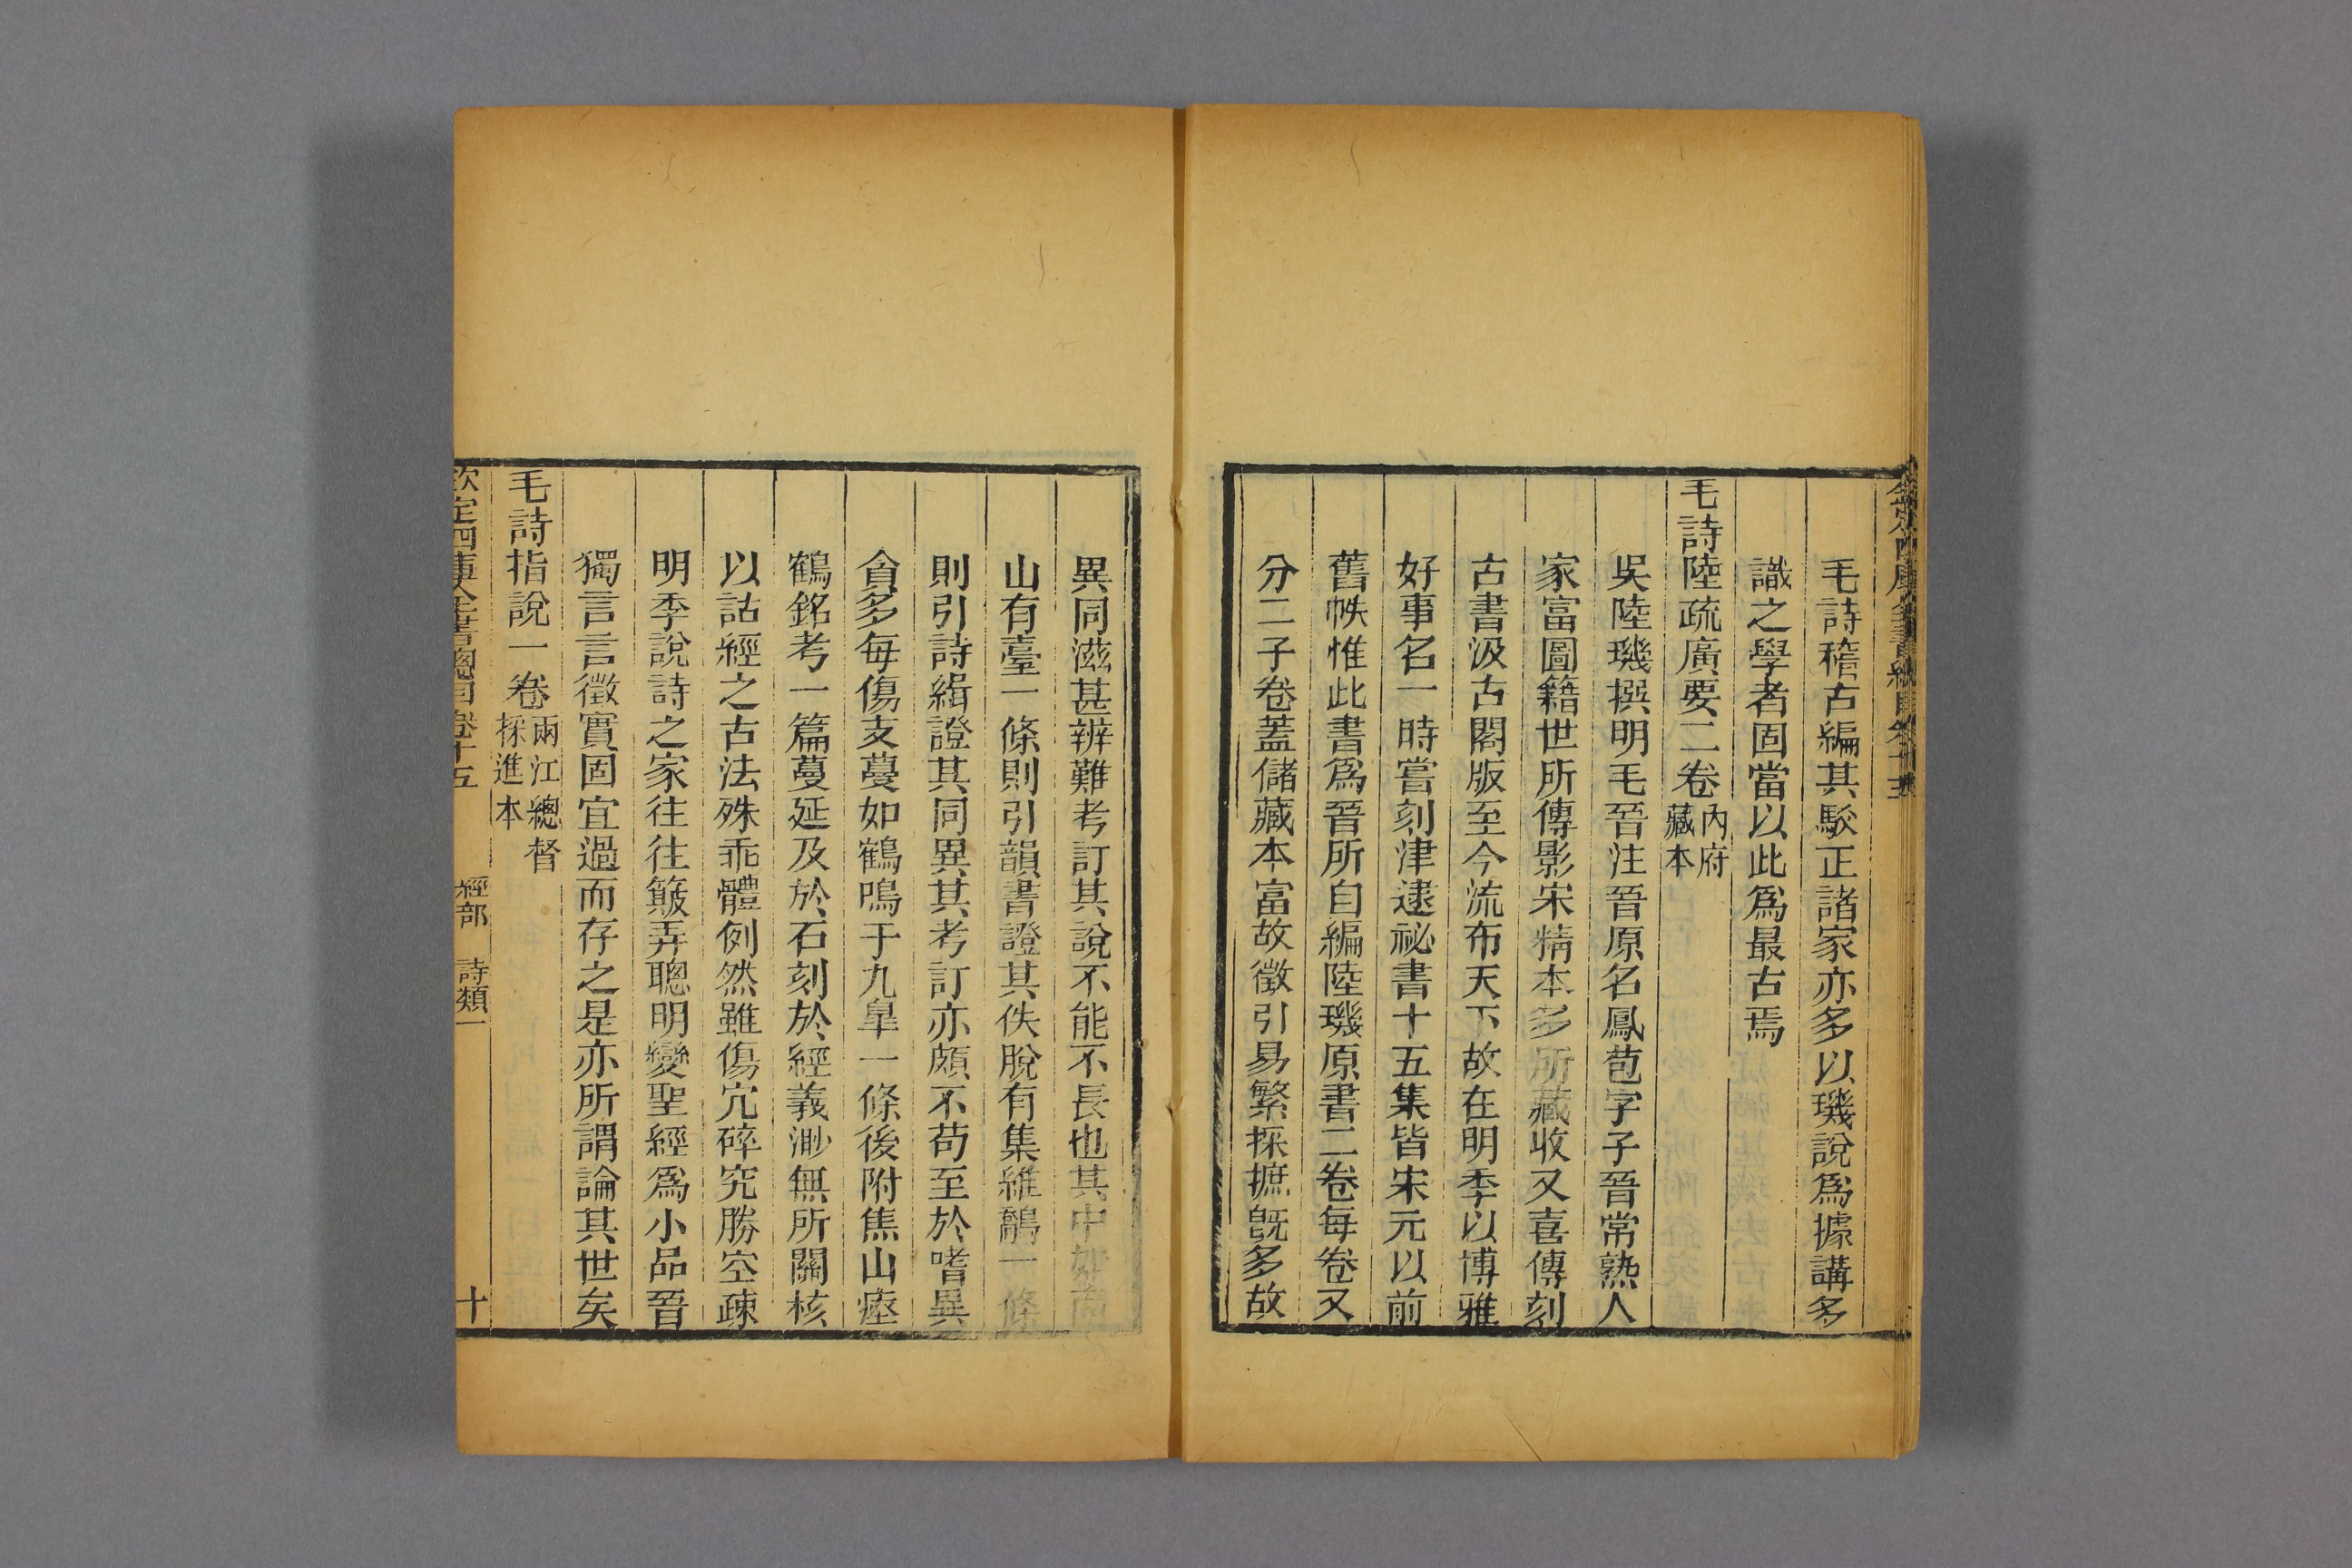 毛詩稽古編其駁正諸家亦多以璣說爲據講多
識之學者固當以此爲最古焉
毛詩陸疏廣要二卷內府藏本
吳陸璣撰明毛晉注晉原名鳳苞字子晉常熟人
家富圖籍世所傳影宋精本多所藏收又喜傳刻
古書汲古閣版至今流布天下故在明季以博雅
好事名一時嘗刻津逮祕書十五集皆宋元以前
舊帙惟此書爲晉所自編陸璣原書二卷每卷又
分二子卷蓋儲藏本富故徵引易繁採摭旣多故
異同滋甚辨難考訂其說不能不長也其中如南
山有臺一條則引韻書證其佚脫有集維鷮一條
則引詩緝證其同異其考訂亦頗不苟至於嗜異
貪多每傷支蔓如鶴鳴于九臯一條後附焦山瘞
鶴銘考一篇蔓延及於石刻於經義渺無所關核
以詁經之古法殊乖體例然雖傷宂碎究勝空疎
明季說詩之家往往簸弄聰明變聖經爲小品晉
獨言言徵實固宜過而存之是亦所謂論其世矣
毛詩指說一卷兩江總督採進本
欽定四庫全書總目卷十五 經部 詩類一 十